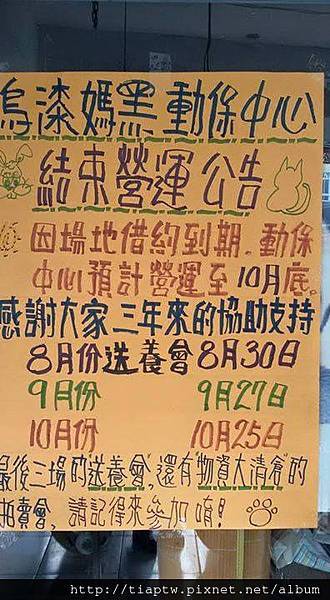 烏漆媽黑動保中心
結束營運公告
因場地借約到期。動保
中心預計營運至10月底。
感謝大家三年來的協助支持
8月份送養會8月30日
9月份 9月27日
10月份 10月25日
最後三場的"送養會",還有"物資大清倉"的
拍賣會,請記得來參加唷!
http://tiaptw.pixnet.net/album